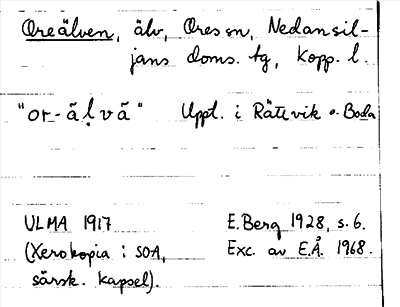 Oreälven, älv, Ores sn, Nedansil-
jans doms. tg, Kopp. l.
"or-ä̃ḷvã" Uppt. i Rättvik o. Boda
ULMA 1917 E. Berg 1928, s. 6.
(Xerokopia i SOA, Exc. av E.Å. 1968.
särsk. kapsel).